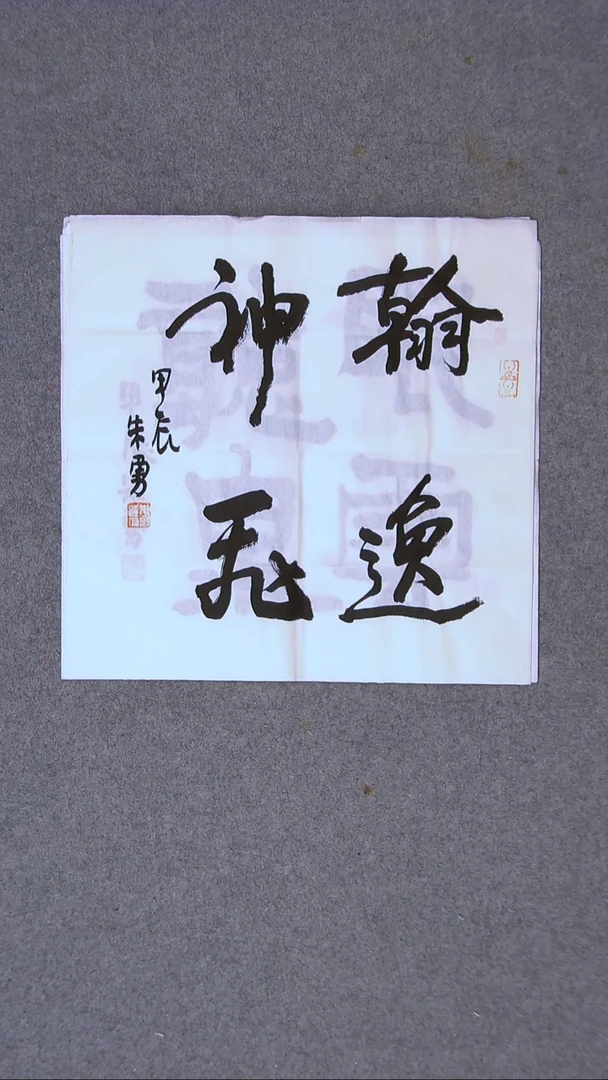 翰逸
神飛
甲辰
朱勇